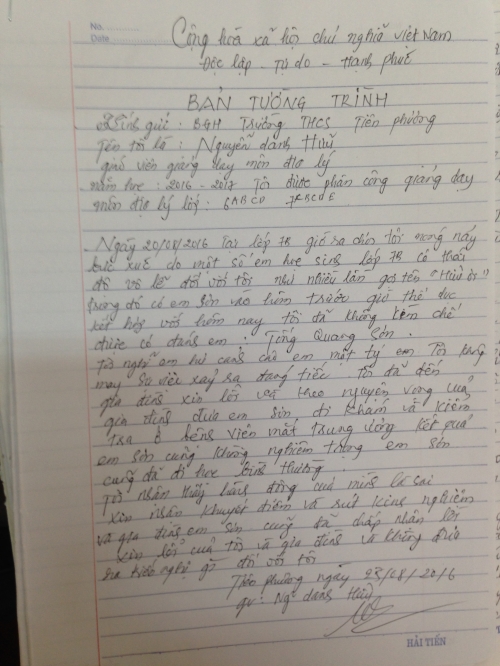 No.
Date
Cộng hoà xã hội chủ nghĩa việt Nam
Độc lập - Tự do - Hạnh phúc
BẢN TƯỜNG TRÌNH
Kính gửi : BGH Trường THCS Tiên phương
Tên tôi là : Nguyễn danh Hữu
giáo viên giảng dạy môn địa lý
năm học : 2016 - 2017 Tôi được phân công giảng dạy
môn địa lý lớp : 6ABCD 7ABCDE
Ngày 20/08/2016 Tại lớp 7B giờ ra chơi tôi nóng nảy
bức xúc do một số em học sinh lớp 7B có thái
độ vô lễ đối với tôi như nhiều lần gọi tên "Hữu
trong đó có em sơn vào hôm trước giờ thể dục
kết hợp với hôm nay tôi đã không kềm chế
được có đánh em : Tống Quang Sơn .
Tôi nghĩ em hư cảnh cáo em một tý em Tôi không
may sự việc xảy ra đáng tiếc Tôi đã đến
gia đình xin lỗi và theo nguyện vọng của
gia đình đưa em sơn đi khám và kiểm
tra ở bệnh viện mắt trung ương kết quả
em sơn cũng không nghiêm trọng em sơn
cũng đã đi học bình thường
Tôi nhận thấy hành động của mình là sai
xin nhận khuyết điểm và rút kinh nghiệm
và gia đình em sơn cũng đã chấp nhận lời
xin lỗi của tôi và gia đình và không đưa
ra kiến nghị gì đối với tôi
Tiên phương ngày 23/08/2016
gv : Ng danh Hữu
HẢI TIẾN